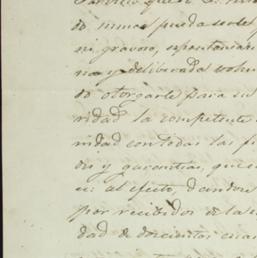 do nunca pueda serle
ni gravoso, espontanea
na y deliberada volun
do otorgarle para su
ridad la competente
nidad con todas las fi
des y garantias, que
en al efecto, dandose
por recibidos de la
dad de doscientos cua